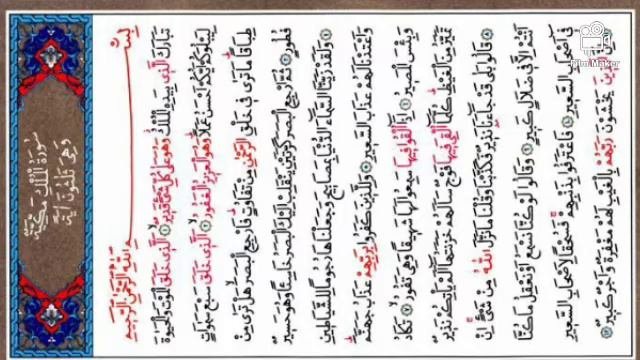 سُورَةُ الْمُلْكِ مَكِّيَّةٌ
وَهِيَ ثَلٰثُونَ اٰيَةً
بِسْمِ اللّٰهِ الرَّحْمٰنِ الرَّحِيمِ
تَبَارَكَ الَّذِي بِيَدِهِ الْمُلْكُ وَهُوَ عَلٰى كُلِّ شَيْءٍ قَدِيرٌ ۝١ اَلَّذِي خَلَقَ الْمَوْتَ وَالْحَيٰوةَ
لِيَبْلُوَكُمْ اَيُّكُمْ اَحْسَنُ عَمَلًا وَهُوَ الْعَزِيزُ الْغَفُورُ ۝٢ اَلَّذِي خَلَقَ سَبْعَ سَمٰوَاتٍ
طِبَاقًا مَا تَرٰى فِي خَلْقِ الرَّحْمٰنِ مِنْ تَفَاوُتٍ فَارْجِعِ الْبَصَرَ هَلْ تَرٰى مِنْ
فُطُورٍ ۝٣ ثُمَّ ارْجِعِ الْبَصَرَ كَرَّتَيْنِ يَنْقَلِبْ اِلَيْكَ الْبَصَرُ خَاسِئًا وَهُوَ حَسِيرٌ
۝٤ وَلَقَدْ زَيَّنَّا السَّمَاءَ الدُّنْيَا بِمَصَابِيحَ وَجَعَلْنَاهَا رُجُومًا لِلشَّيَاطِينِ
وَاَعْتَدْنَا لَهُمْ عَذَابَ السَّعِيرِ ۝٥ وَلِلَّذِينَ كَفَرُوا بِرَبِّهِمْ عَذَابُ جَهَنَّمَ
وَبِئْسَ الْمَصِيرُ ۝٦ اِذَا اُلْقُوا فِيهَا سَمِعُوا لَهَا شَهِيقًا وَهِيَ تَفُورُ ۝٧ تَكَادُ
تَمَيَّزُ مِنَ الْغَيْظِ كُلَّمَا اُلْقِيَ فِيهَا فَوْجٌ سَاَلَهُمْ خَزَنَتُهَا اَلَمْ يَاْتِكُمْ نَذِيرٌ
۝٨ قَالُوا بَلٰى قَدْ جَاءَنَا نَذِيرٌ فَكَذَّبْنَا وَقُلْنَا مَا نَزَّلَ اللّٰهُ مِنْ شَيْءٍ اِنْ
اَنْتُمْ اِلَّا فِي ضَلَالٍ كَبِيرٍ ۝٩ وَقَالُوا لَوْ كُنَّا نَسْمَعُ اَوْ نَعْقِلُ مَا كُنَّا
فِي اَصْحَابِ السَّعِيرِ ۝١٠ فَاعْتَرَفُوا بِذَنْبِهِمْ فَسُحْقًا لِاَصْحَابِ السَّعِيرِ
۝١١ اِنَّ الَّذِينَ يَخْشَوْنَ رَبَّهُمْ بِالْغَيْبِ لَهُمْ مَغْفِرَةٌ وَاَجْرٌ كَبِيرٌ ۝١٢
Film Maker